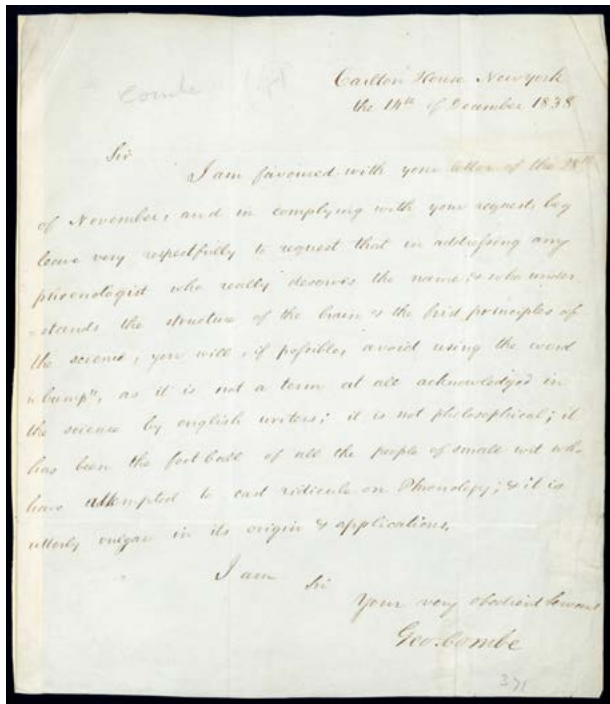 Combe
Carlton House New York
the 14th of December 1838
Sir
I am favoured with your letter of the 28th
of November, and in complying with your request, beg
leave very respectfully to request that in addressing any
phrenologist who really deserves the name, & who under
-stands the structure of the brain & the first principles of
the science, you will, if possible, avoid using the word
"bump", as it is not a term at all acknowledged in
the science by english writers; it is not philosophical; it
has been the foot ball of all the people of small wit who
have attempted to cast ridicule on Phrenology; & it is
utterly vulgar in its origin & applications.
I am Sir
Your very obedient Servant
Geo. Combe
371